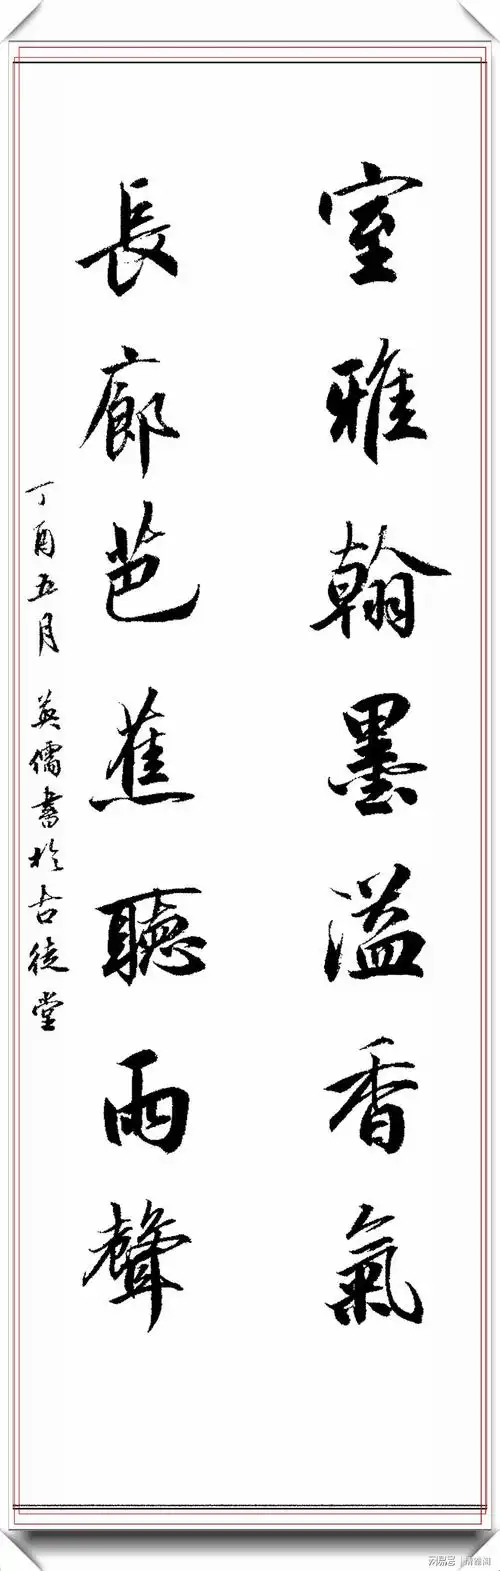 室雅翰墨溢香氣
長廊芭蕉聽雨聲
丁酉五月 英儒書於古徒堂
網易號 | 清雅阁